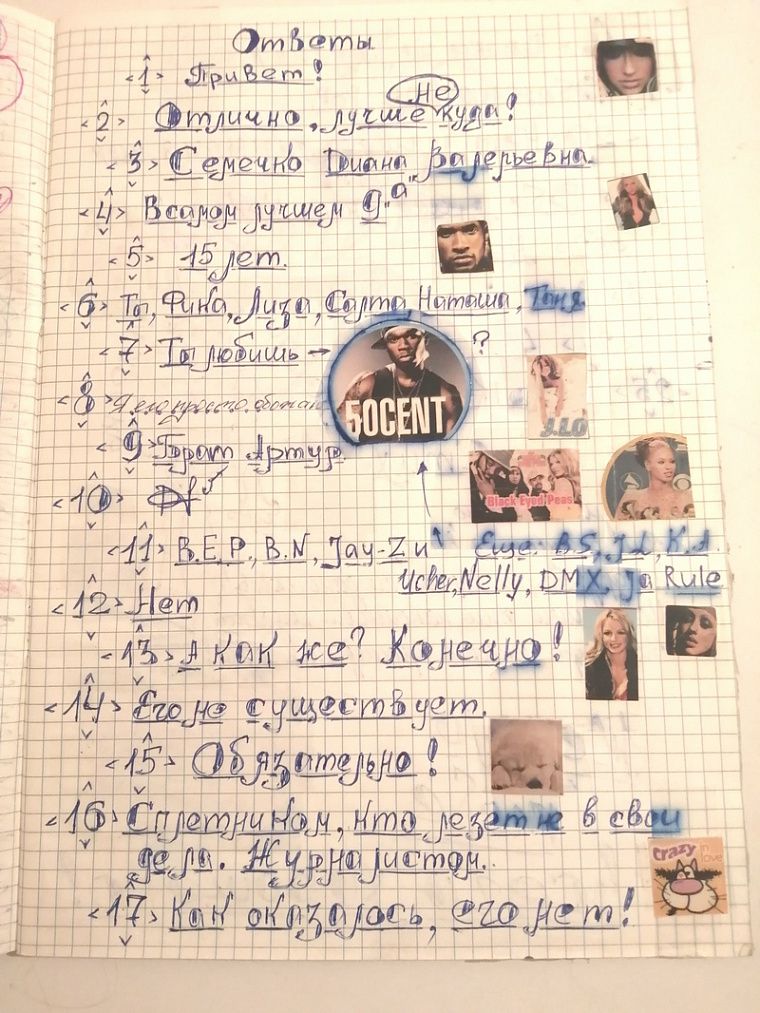 Ответы
<1> Привет!
не
<2> Отлично, лучше куда!
<3> Семечко Диана Валерьевна.
<4> В самом лучшем 9"а"
<5> 15 лет.
<6> Ты, Фика, Лиза, Салта, Наташа, Таня
<7> Ты любишь → ?
50CENT
<8> Я его просто обожаю
J.LO
<9> Брат Артур.
Black Eyed Peas
<10> 5
<11> B.E.P., B.N, Jay-Z и Еще: B.S, J.L, K.A.
Ucher, Nelly, DMX, Ja Rule
<12> Нет
<13> А как же? Конечно!
<14> Его не существует.
<15> Обязательно!
<16> Сплетником, кто лезет не в свои
дела. Журналистом.
Crazy in love
<17> Как оказалось, его нет!